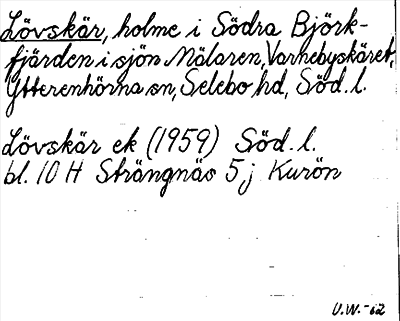 Lövskär, holme i Södra Björk-
fjärden i sjön Mälaren, Varnebyskäret,
Ytterenhörna sn, Selebo hd, Söd. l.
Lövskär ek (1959) Söd. l.
bl. 10 H Strängnäs 5 j Kurön
U.W.-62